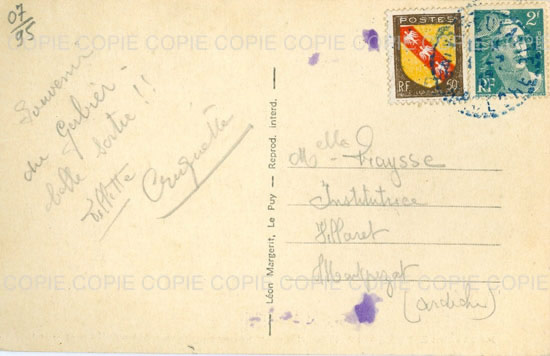 07
95
Souvenir
du Gerbier-
belle sortie !!
Léon Margerit, Le Puy — Reprod. interd.
POSTES
RF 60c
2F
RF
Melle Fraysse
Institutrice
Villaret
Montpezat
(Ardèche)
COPIE COPIE COPIE COPIE COPIE COPIE COPIE
COPIE COPIE COPIE COPIE COPIE COPIE COPIE